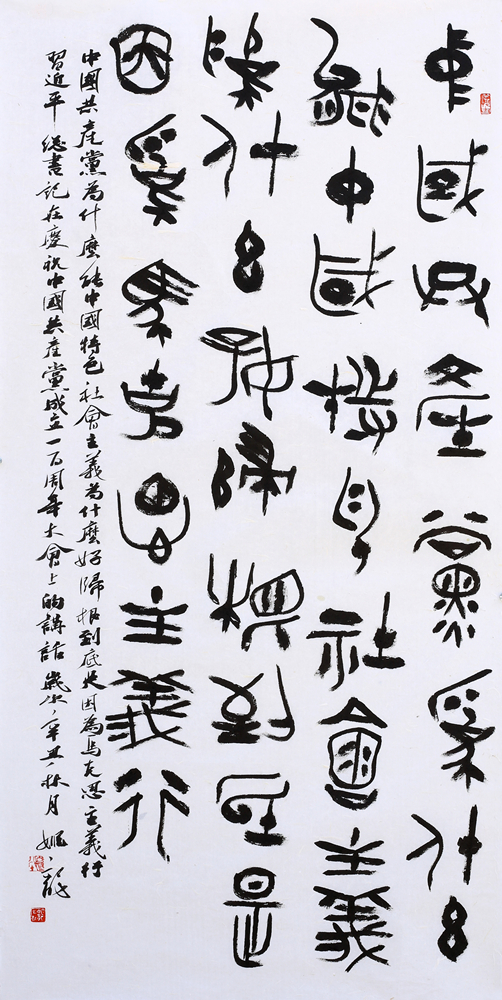 中國共產黨為什么
能中國特色社會主義
為什么好歸根到底是
因為馬克思主義行
中國共產黨為什麼能中國特色社會主義為什麼好歸根到底是因為馬克思主義行
習近平總書記在慶祝中國共產黨成立一百周年大會上的講話歲次辛丑